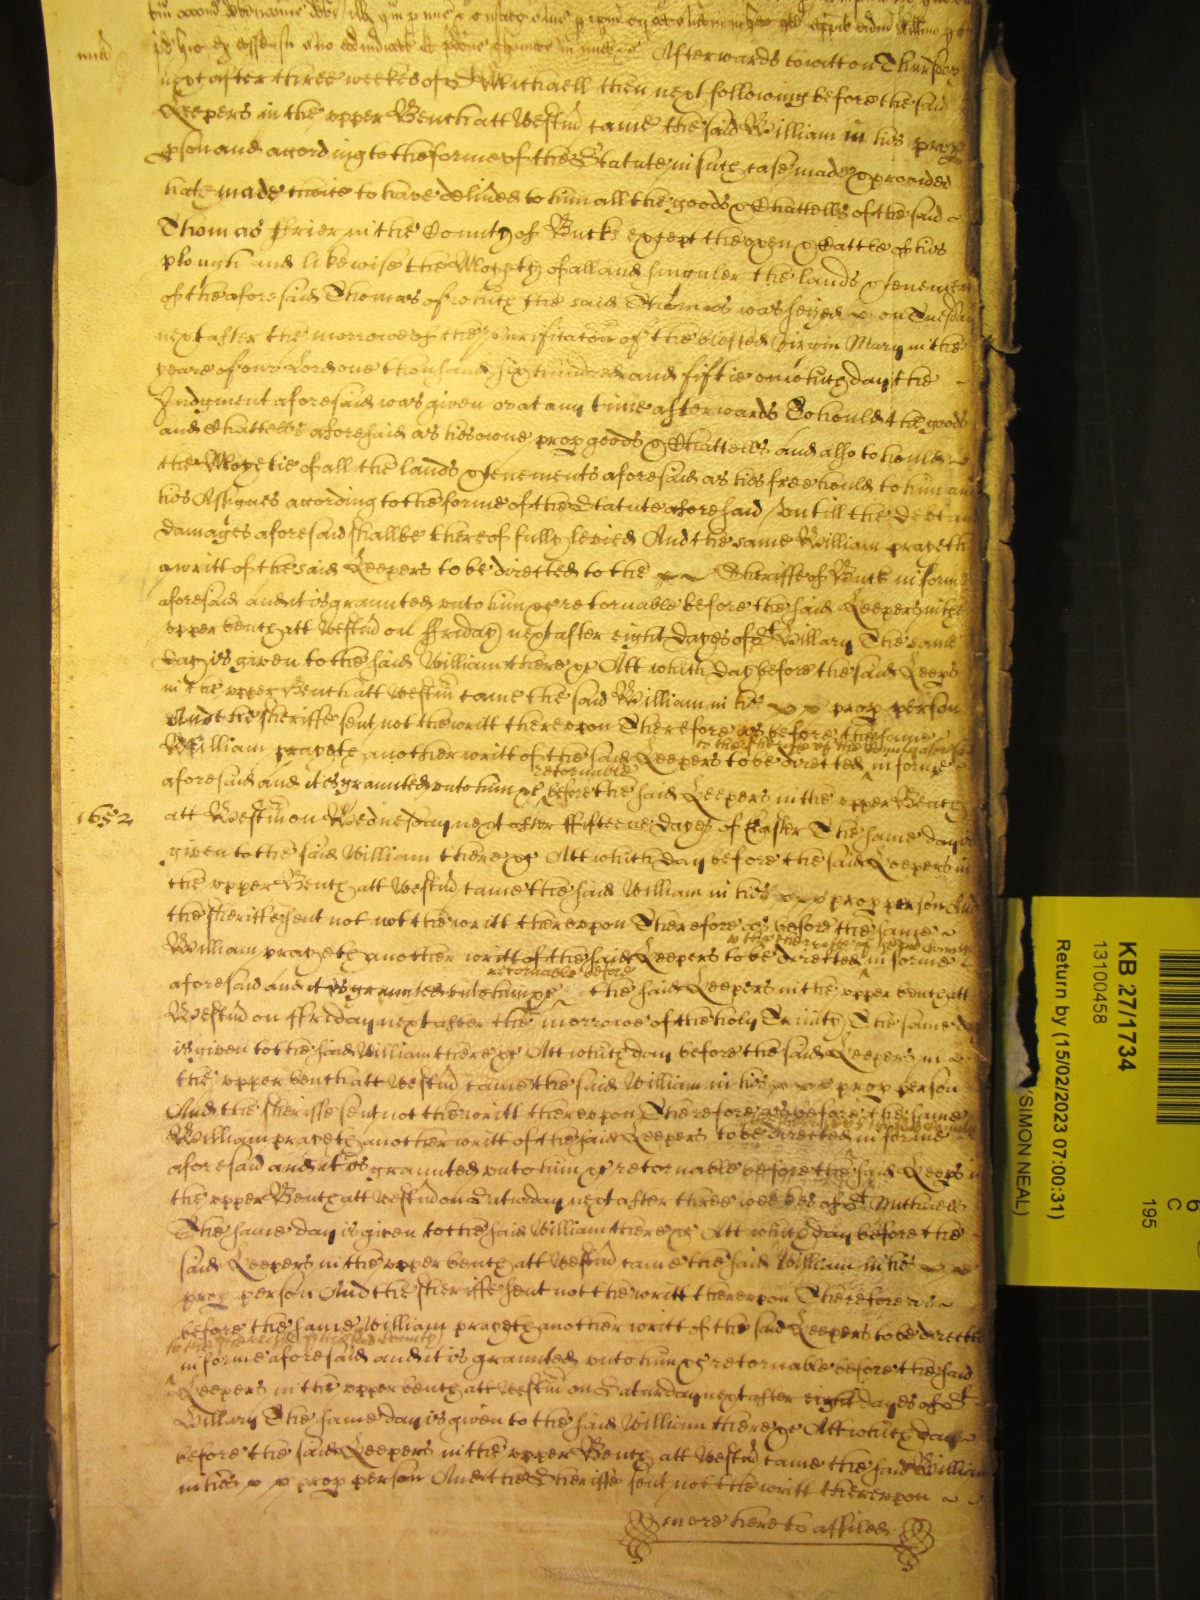 Afterwards to witt on Thursday
next after three weekes of St Michaell then next following before the said
Keepers in the upper Bench att Westm came the said William in his prop
pson and according to the forme of the Statute in such case made & provided
hath made choice to have delivered to him all the goods & Chattells of the said
Thomas Frier in the County of Bucks except the oxen & Cattle of his
plough and likewise the Moyety of all and singuler the lands & tenements
of the aforesaid Thomas of which the said Thomas was seized on Tuesday
next after the morrowe of the purificacon of the blessed virgin Mary in the
yeare of our Lord one thousand six hundred and fiftie on which day the
Judgment aforesaid was given or at any time afterwards To hould the goods
and Chattells aforesaid as his owne prop goods & Chattells and also to hould
the Moyetie of all the lands & tenements aforesaid as his free hould to him and
his Assignes according to the forme of the Statute aforesaid untill the debt and
damages aforesaid shall be thereof fully levied And the same William prayeth
a writt of the said Keepers to be directed to the Sheriffe of Buck in forme
aforesaid and it is graunted unto him &c retornable before the said Keepers in the
upper bench att Westm on Friday next after eight dayes of St Hillary The same
day is given to the said William there &c Att which day before the said Keeps
in the upper Bench att Westm came the said William in his prop person
And the sheriffe sent not the writt thereupon Therefore as before the same
William prayeth another writt of the said Keepers to be directed in forme
aforesaid and it is graunted unto him &c retornable before the said Keepers in the upper Bench
1652
att Westm on Wednesday next after Fifteene dayes of Easter The same day is
given to the said William there &c Att which day before the said Keepers in
the upper Bench att Westm came the said William in his prop person And
the sheriffe sent not not the writt thereupon Therefore as before the same
William prayeth another writt of the said Keepers to be directed in forme
aforesaid and it is graunted unto him &c retornable before the said Keepers in the upper bench att
Westm on Friday next after the morrowe of the holy Trinity The same day
is given to the said William there &c Att which day before the said Keepers in
the upper bench att Westm came the said William in his prop person
And the sheriffe sent not the writt thereupon Therefore as before the same
William prayeth another writt of the said Keepers to be directed in forme
aforesaid and it is graunted unto him &c retornable before the said Keeps in
the upper Bench att Westm on Saturday next after three weekes of St Michaell
The same day is given to the said William there &c Att which day before the
said Keepers in the upper bench att Westm came the said William in his
prop person And the sheriffe sent not the writt thereupon Therefore as
before the same William prayeth another writt of the said Keepers to be directed
in forme aforesaid and it is graunted unto him &c retornable before the said
Keepers in the upper bench att Westm on Saturday next after eight dayes of St
Hillary The same day is given to the said William there &c Att which day
before the said Keepers in the upper Bench att Westm came the said William
in his prop person And the Sheriffe sent not the writt thereupon
more here to affiled
KB 27/1734
13100458
Return by (15/02/2023 07:00:31)
SIMON NEAL)
195
C
6